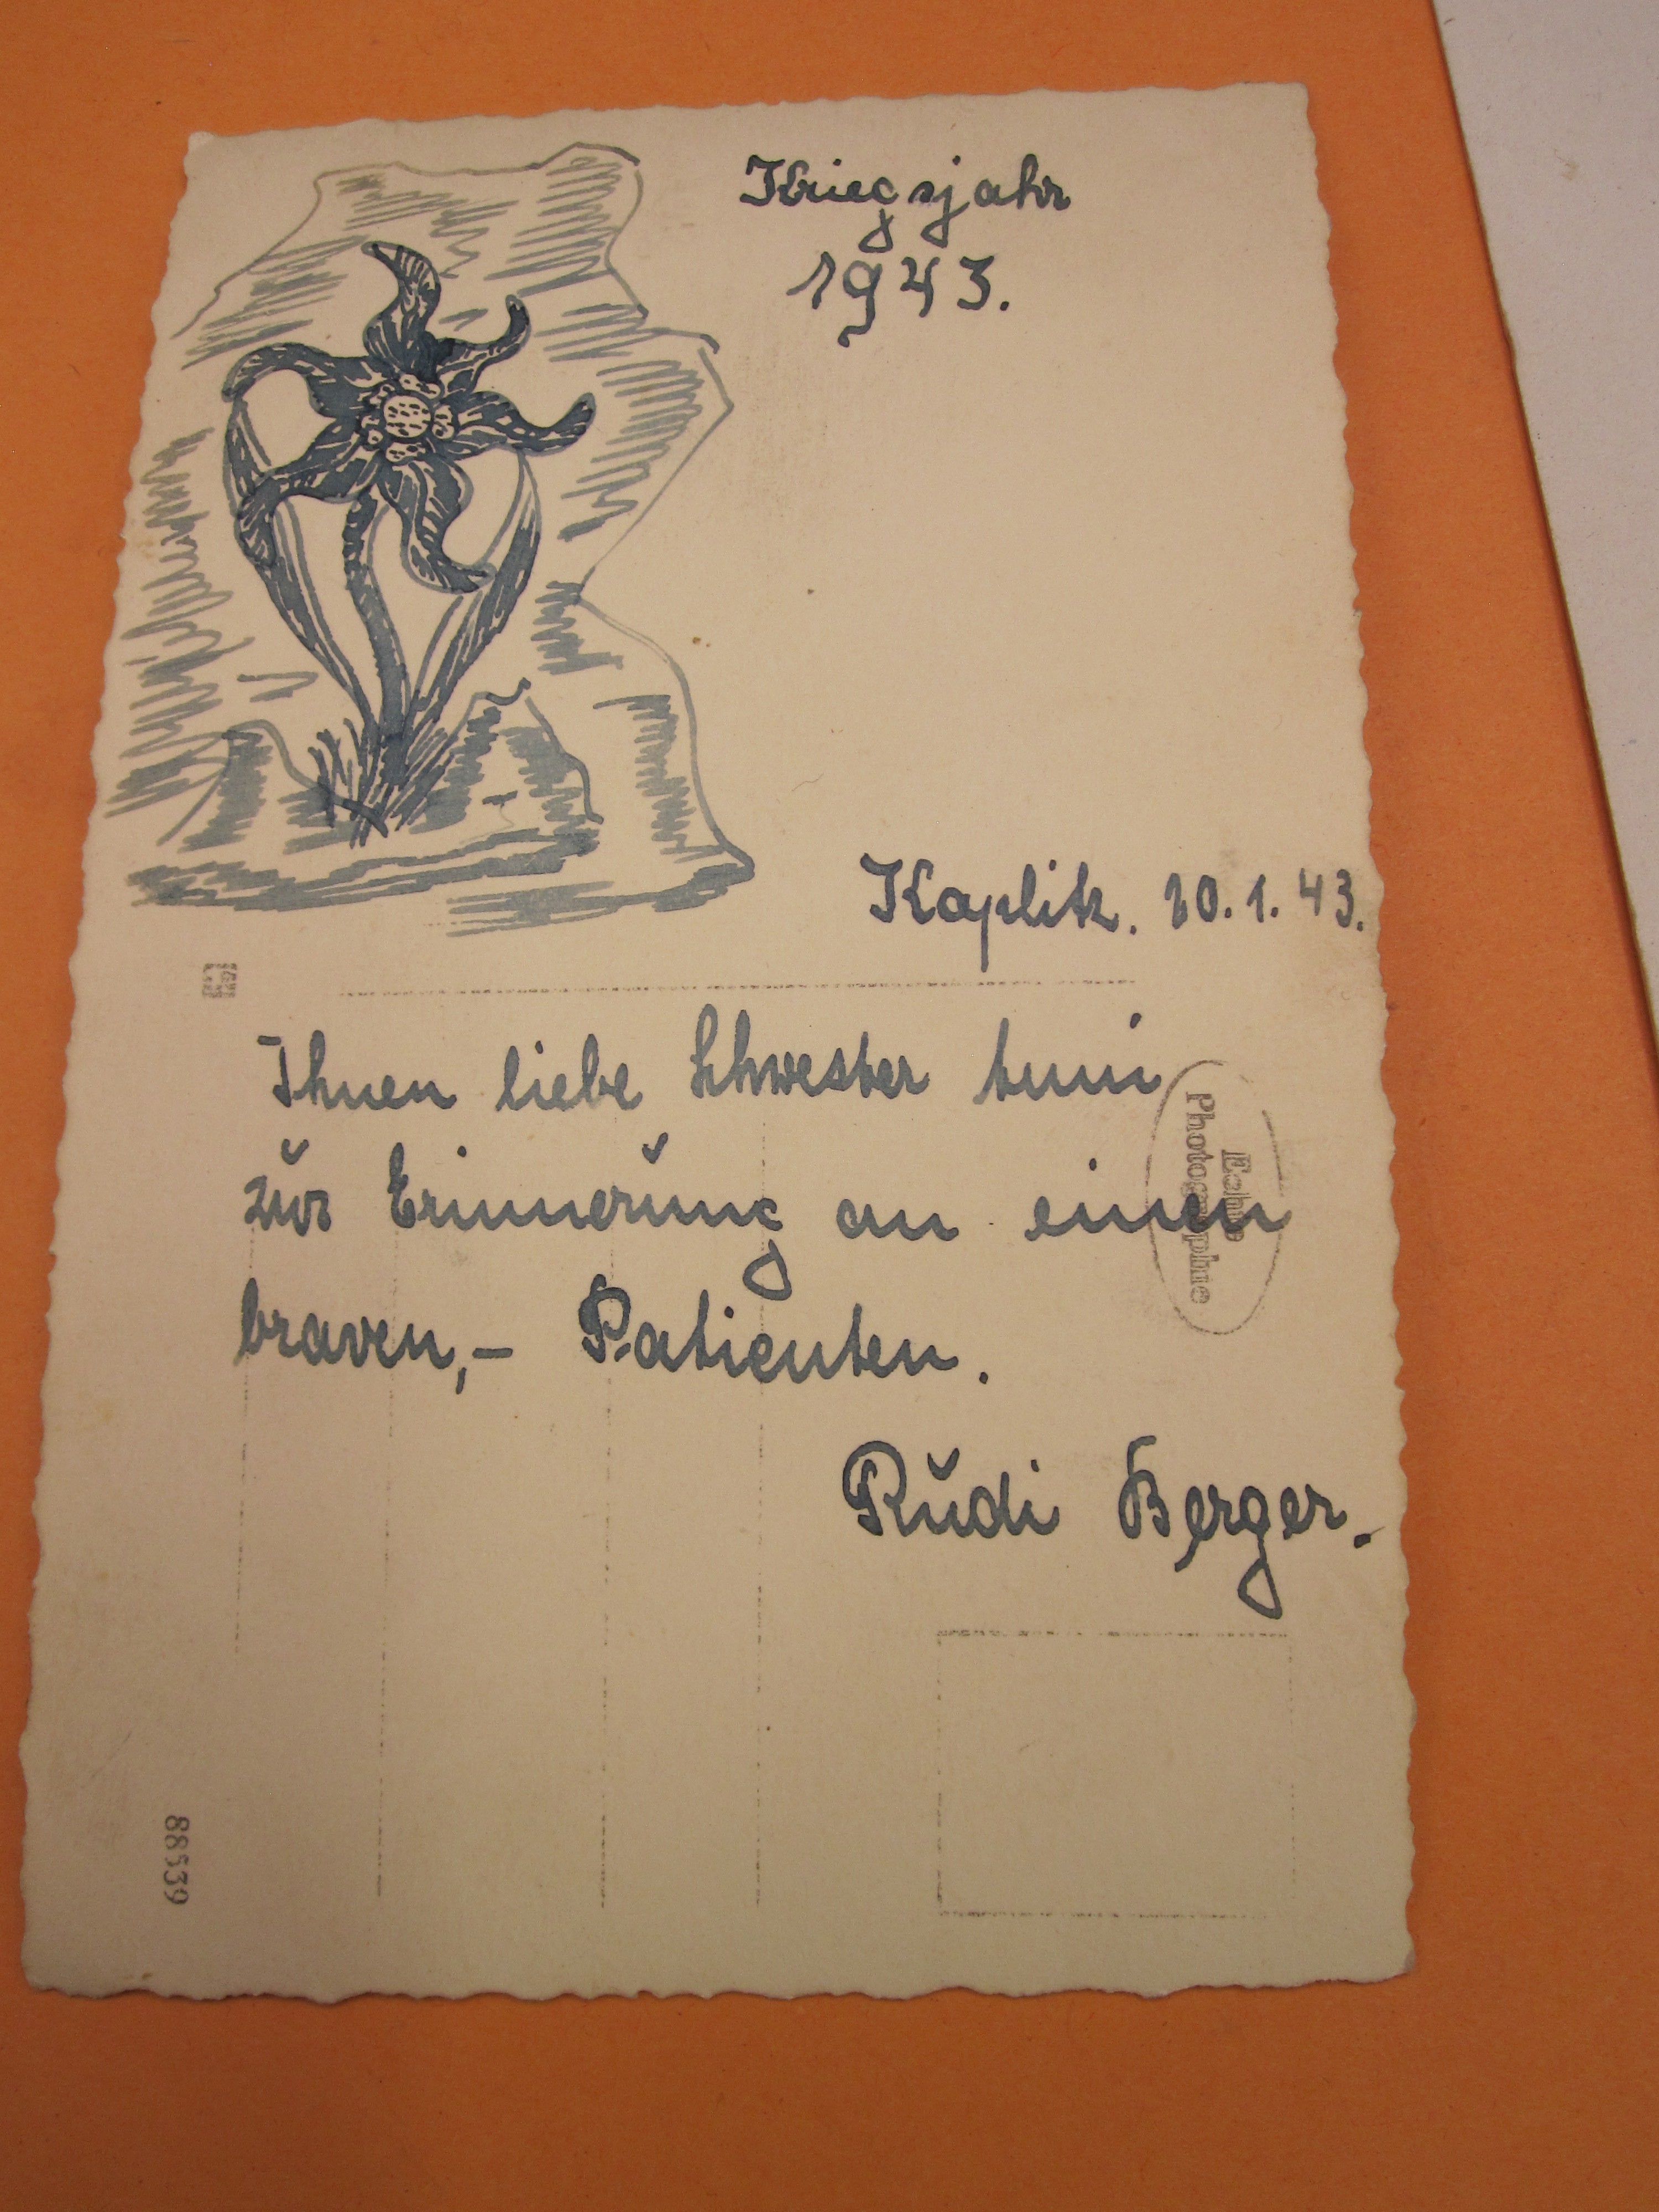 Kriegsjahr
1943.
Kaplitz. 10.1.43.
Ihnen liebe Schwester
zur Erinnerung an einen
braven,- Patienten.
Rudi Berger.
Echte
Photographie
88539